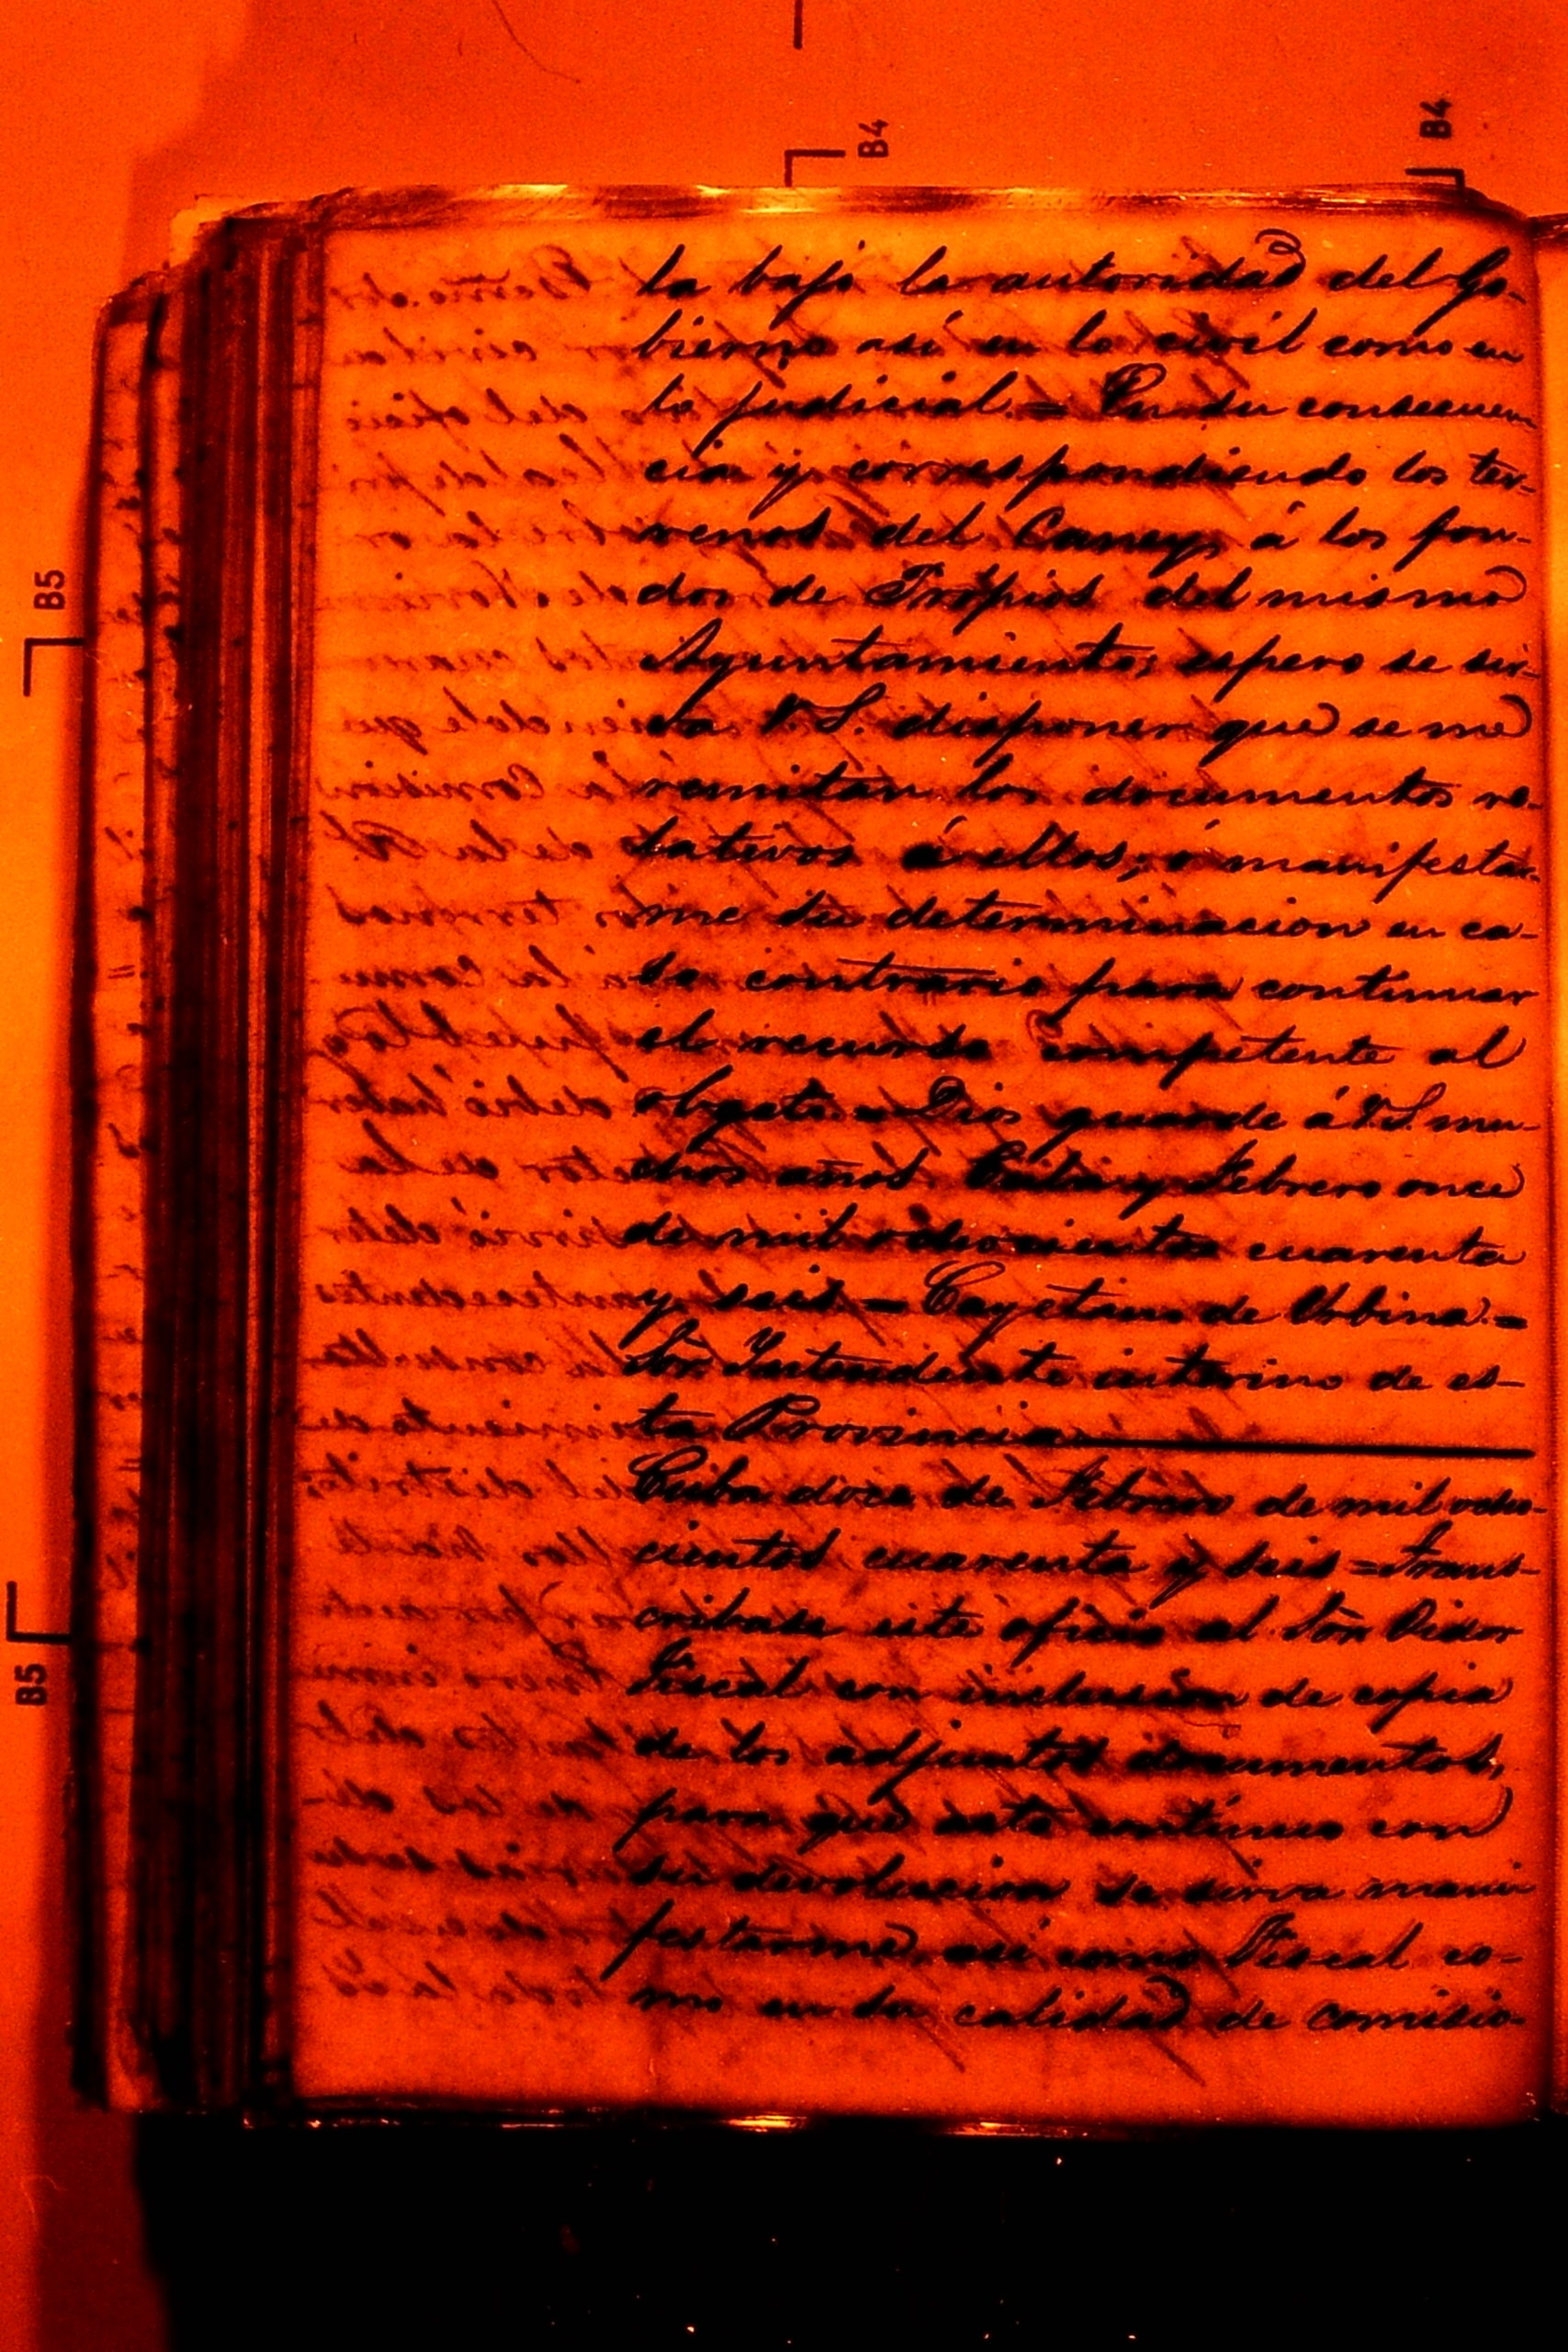 B4
B4
B5
B5
ta bajo la autoridad del Go-
bierno así en lo civil como en
lo judicial. = En su consecuen
cia y correspondiendo los ter-
renos del Caney, á los fon-
dos de Propios del mismo
Ayuntamiento; espero se sir-
va V.S. disponer que se me
remitan los documentos re-
lativos á ellos, ó manifestar-
me su determinacion en ca-
so contrario para continuar
el recurso competente al
obgeto = Dios guarde á V.S. mu-
chos años Cuba y Febrero once
de mil ochocientos cuarenta
y seis = Cayetano de Urbina. =
Sõr Intendente interino de es-
ta Provincia
Cuba doce de Febrero de mil ocho-
cientos cuarenta y seis = Trans-
cribase este oficio al Sõr Oidor
Fiscal con inclusion de copia
de los adjuntos documentos,
para que con
su devolucion se sirva mani
festarme, asi como Fiscal co-
mo en su calidad de comisio-